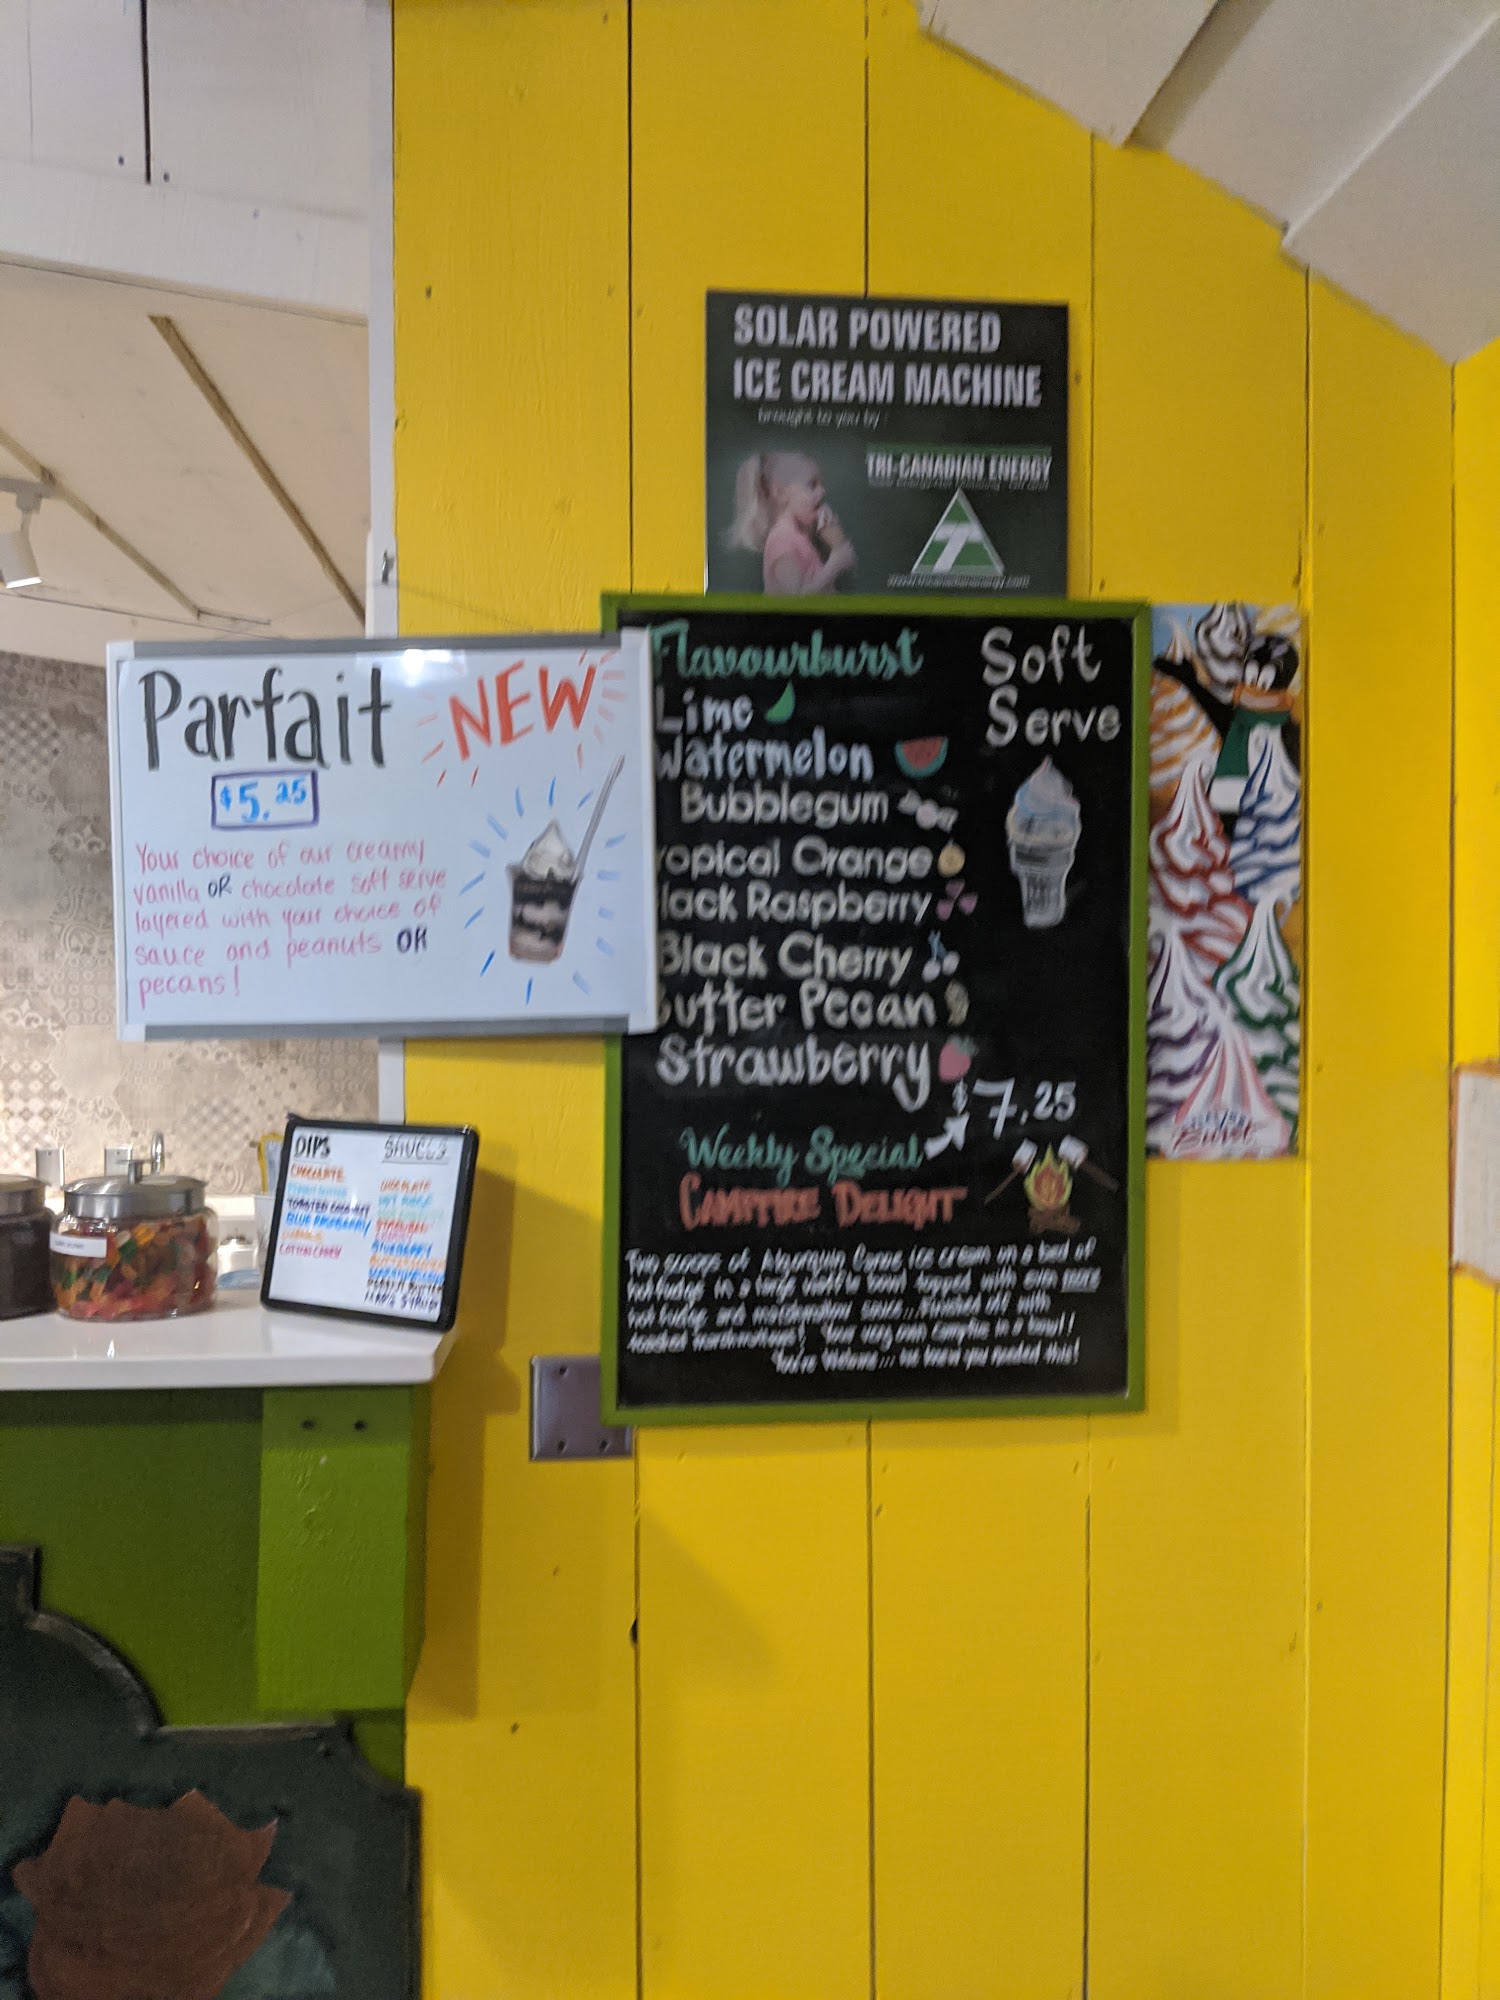 SOLAR POWERED
ICE CREAM MACHINE
brought to you by:
TRI-CANADIAN ENERGY
Parfait NEW
$5.25
Your choice of our creamy
vanilla OR chocolate soft serve
layered with your choice of
sauce and peanuts OR
pecans!
Flavourburst
Lime
Watermelon
Bubblegum
ropical Orange
lack Raspberry
Black Cherry
utter Pecan
Strawberry
Soft
Serve
$7.25
Weekly Special
CAMPFIRE DELIGHT
Two scoops of Algonquin Canoe ice cream on a bed of
hot fudge in a large bowl topped with even more
hot fudge and marshmallow sauce... Finished off with
toasted marshmallows! Your very own campfire in a bowl!
You're Welcome... we knew you needed this!
DIPS
CHOCOLATE
TOASTED COCONUT
BLUE RASPBERRY
COTTON CANDY
SAUCES
CHOCOLATE
HOT FUDGE
BLUEBERRY
BUTTERSCOTCH
MARSHMALLOW
PEANUT BUTTER
MAPLE SYRUP
Burst